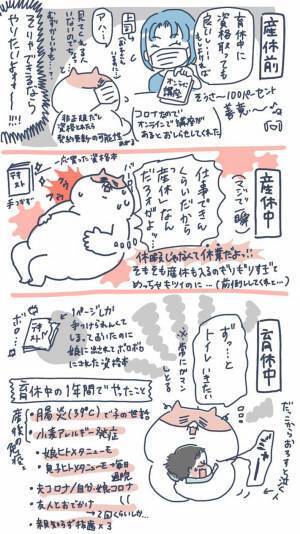 産休前
育休中に
資格取っても
良いし
上司
オンライン講座
そうさ〜100パーセント
勇気〜♪
アハハ
見てくれる人
いないので
むずかしいかも…?
非正規だし
資格とれたら
契約更新の可能性
コロナなので
オンラインで講座が
あるとおしらせしてくれた
そりゃできるなら
やりたいよォォ!!!
産休中
(えっ?て瞬)
一応買った資格本
テキスト
手つかず
仕事できん
くらいだから
「産休」なん
だろオがよッ
休暇じゃなくて休業だよ…!!
そもそも産休も入るのぎりぎりすぎて
めっちゃキツイのに…(前倒ししてくれ…)
育休中
ボロ…
テキスト
1ページしか
手つけられんくて
しまっておいたのに
娘に出されてボロボロ
にされた資格本
ずっ…と
トイレいきたい
※常にガマン
しとる
だっこからおろすと泣く人
育休中の1年間でやったこと
産後の免疫
・腸炎(39℃)で子の世話
・小麦アレルギー発症
・娘ヒトメタニューモ
・息子ヒトメタニューモ→毎日
通院
・夫コロナ/自分・娘コロナ
・友人とおでかけ
→2回くらいしか…
・親知らず抜歯×3